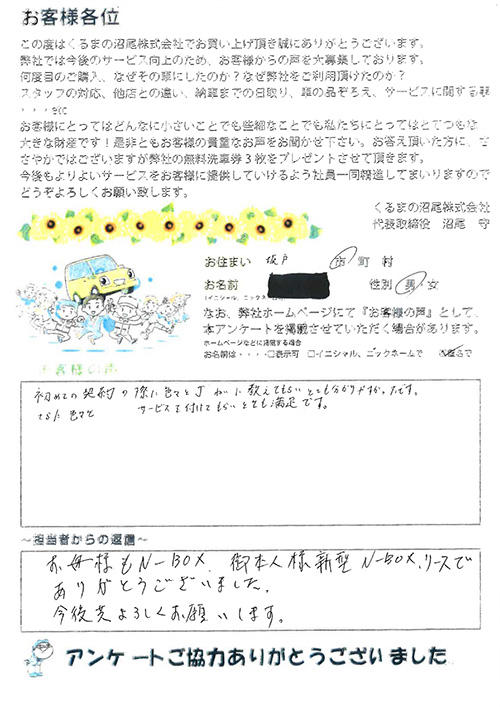 お客様各位
この度はくるまの沼尾株式会社でお買い上げ頂き誠にありがとうございます。
弊社では今後のサービス向上のため、お客様からの声を大募集しております。
何度目のご購入、なぜその車にしたのか？なぜ弊社をご利用頂けたのか？
スタッフの対応、他店との違い、納車までの日取り、車の品ぞろえ、サービスに関する事
・・・etc
お客様にとってはどんなに小さいことでも些細なことでも私たちにとってはとてつもな
大きな財産です！是非ともお客様の貴重なお声をお聞かせ下さい。お答え頂いた方に、さ
さやかではございますが弊社の無料洗車券３枚をプレゼントさせて頂きます。
今後もよりよいサービスをお客様に提供していけるよう社員一同精進してまいりますので
どうぞよろしくお願い致します。
くるまの沼尾株式会社
代表取締役 沼尾 守
お住まい 坂戸 市 町 村
お名前 性別 男 女
(イニシャル、ニックネーム可)
なお、弊社ホームページにて『お客様の声』として、
本アンケートを掲載させていただく場合があります。
ホームページなどに掲載する場合
お名前は・・・・□表示可 □イニシャル、ニックネームで □匿名で
お客様の声
初めての契約の際に色々と丁ねいに教えてもらいとても分かりやすかったです。
さらに色々と サービスを付けてもらいとても満足です。
～担当者からの返信～
お母様もN-BOX、御本人様新型N-BOX、リースで
ありがとうございました。
今後共よろしくお願いします。
アンケートご協力ありがとうございました